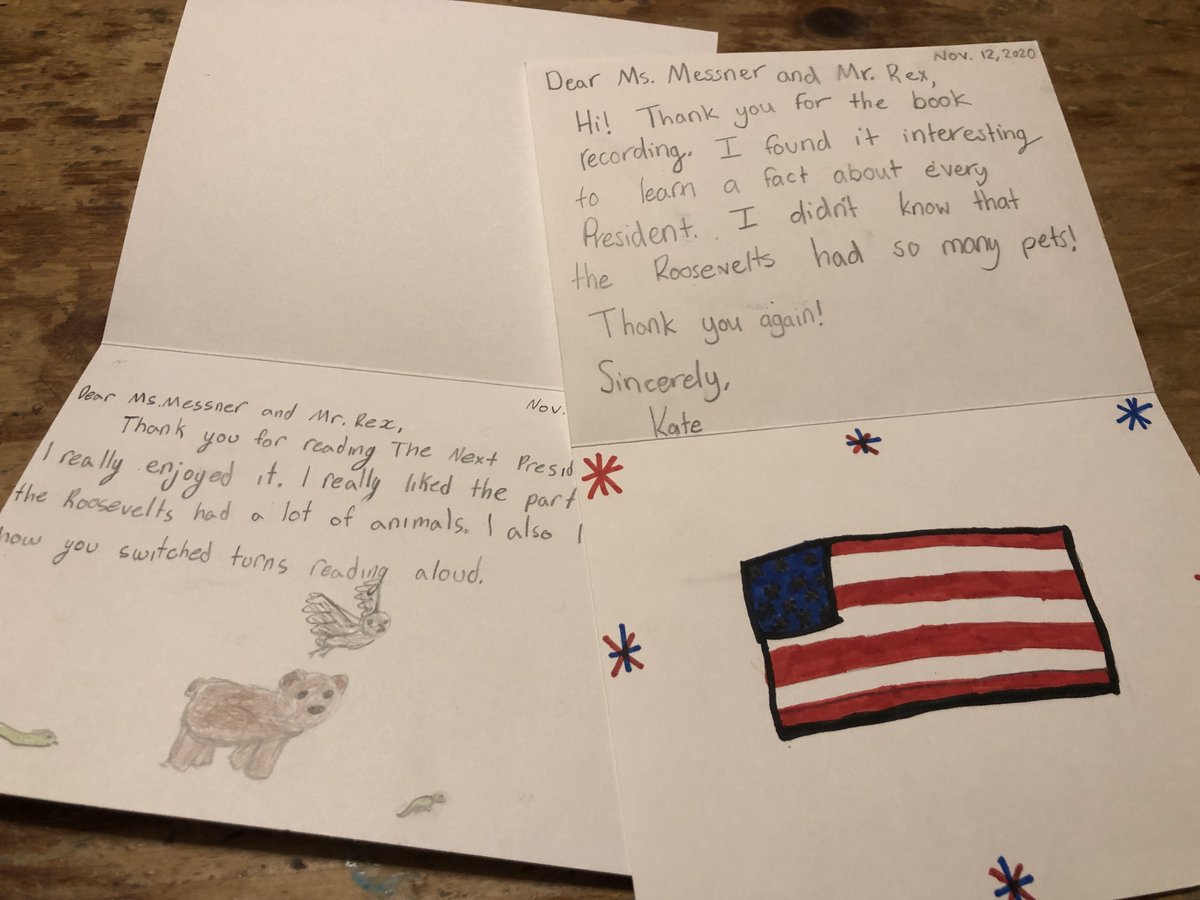 Nov. 12, 2020
Dear Ms. Messner and Mr. Rex,
Hi! Thank you for the book
recording. I found it interesting
to learn a fact about every
President. I didn't know that
the Roosevelts had so many pets!
Thank you again!
Sincerely,
Kate
Nov.
Dear Ms. Messner and Mr. Rex,
Thank you for reading The Next Presid
I really enjoyed it. I really liked the part
the Roosevelts had a lot of animals. I also l
how you switched turns reading aloud.